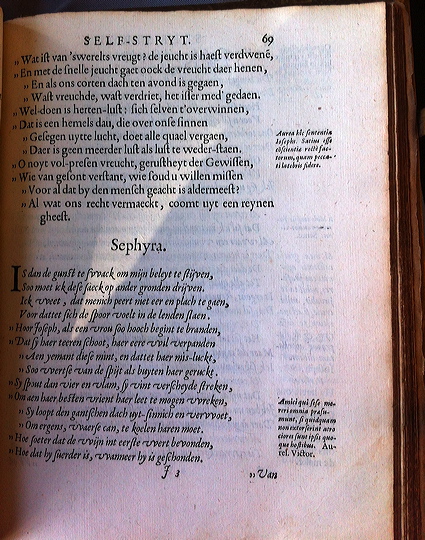 SELF-STRYT. 69
„ Wat ist van 'swerelts vreugt? de jeucht is haest verdwenē,
„ En met de snelle jeucht gaet oock de vreucht daer henen,
„ En als ons corten dach ten avond is gegaen,
„ Wast vreuchde, wast verdriet, het isser med' gedaen.
„ Wel-doen is herten-lust: sich selven t'overwinnen,
„ Dat is een hemels dau, die over onse sinnen
„ Gesegen uytte lucht, doet alle quael vergaen,
„ Daer is geen meerder lust als lust te weder-staen.
„ O noyt vol-presen vreucht, gerustheyt der Gewissen,
„ Wie van gesont verstant, wie soud u willen missen
„ Voor al dat by den mensch geacht is aldermeest?
„ Al wat ons recht vermaeckt, coomt uyt een reynen
gheest.
Aurea hîc sententia
Iosephi. Satius esse
Sephyra.
IS dan de gunst te swack om mijn beleyt te stijven,
Soo moet ick dese saeck op ander gronden drijven.
Ick weet, dat menich peert niet eer en plach te gaen,
Voor dattet sich de spoor voelt in de lenden slaen.
„ Hoor Joseph, als een vrou soo hooch begint te branden,
„ Dat sy haer teeren schoot, haer eere wil verpanden
„ Aen yemant diese mint, en dattet haer mis-luckt,
„ Soo wertse van de spijt als buyten haer geruckt.
„ Sy spout dan vier en vlam, sy vint verscheyde streken,
„ Om aen haer besten vrient haer leet te mogen wreken,
„ Sy loopt den gantschen dach uyt-sinnich en verwoet,
„ Om ergens, waerse can, te koelen haren moet.
„ Hoe soeter dat de wijn int eerste wert bevonden,
„ Hoe dat hy suerder is, wanneer hy is geschonden.
Amici qui sese mereri
omnia præsumunt,
si quidquam
non extorserint acrociores
sunt ipsis quoque
hostibus. Aurel.
Victor.
I 3 „ Van